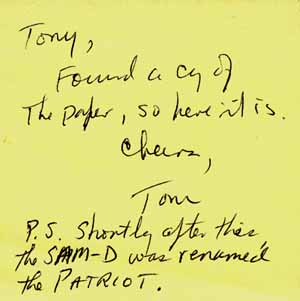 Tony,
Found a cy of
The paper, so here it is.
Cheers,
Tom
P.S. Shortly after this
the SAM-D was renamed
the PATRIOT.